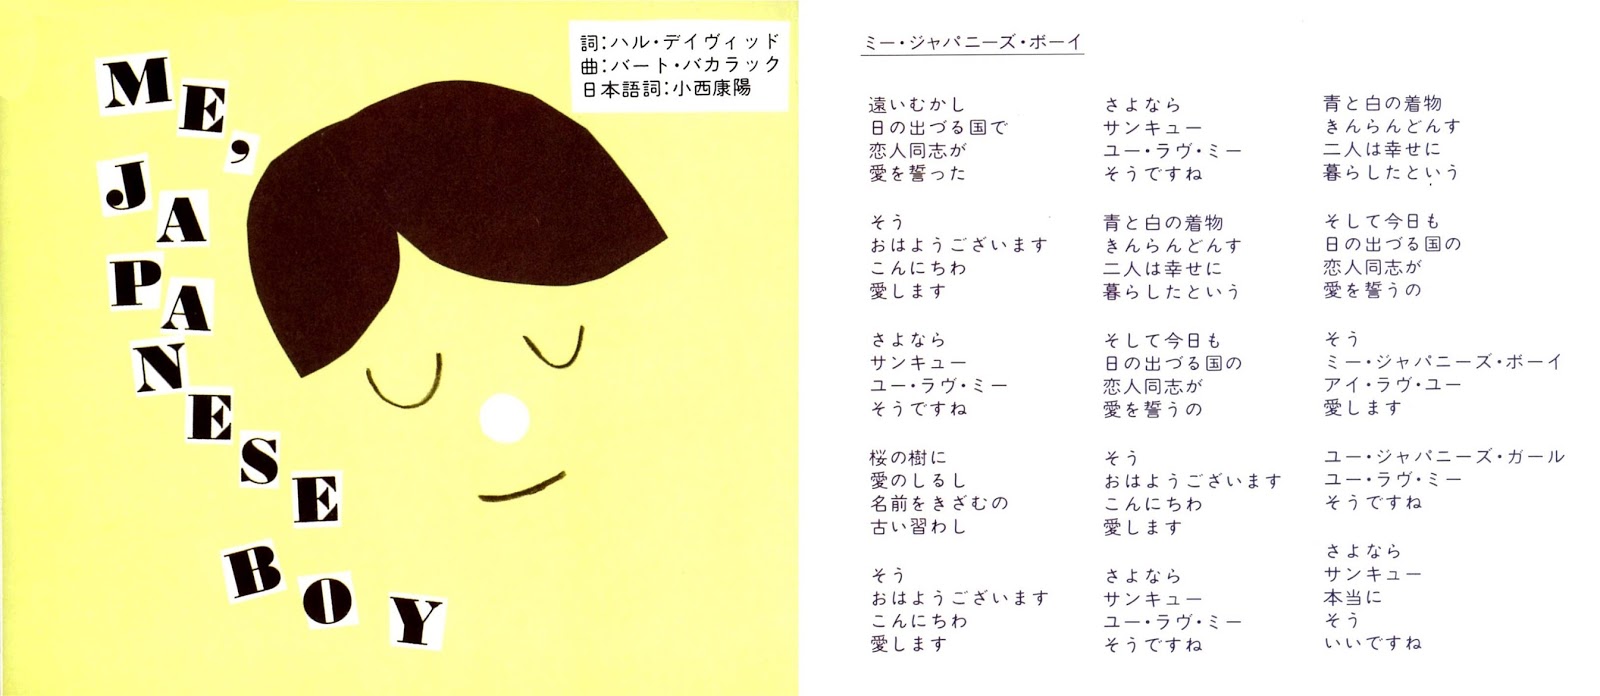 ME,
JAPANESE
BOY
詞:ハル・デイヴィッド
曲:バート・バカラック
日本語詞:小西康陽
ミー・ジャパニーズ・ボーイ
遠いむかし
日の出づる国で
恋人同志が
愛を誓った
そう
おはようございます
こんにちわ
愛します
さよなら
サンキュー
ユー・ラヴ・ミー
そうですね
桜の樹に
愛のしるし
名前をきざむの
古い習わし
そう
おはようございます
こんにちわ
愛します
さよなら
サンキュー
ユー・ラヴ・ミー
そうですね
青と白の着物
きんらんどんす
二人は幸せに
暮らしたという
そして今日も
日の出づる国の
恋人同志が
愛を誓うの
そう
おはようございます
こんにちわ
愛します
さよなら
サンキュー
ユー・ラヴ・ミー
そうですね
青と白の着物
きんらんどんす
二人は幸せに
暮らしたという
そして今日も
日の出づる国の
恋人同志が
愛を誓うの
そう
ミー・ジャパニーズ・ボーイ
アイ・ラヴ・ユー
愛します
ユー・ジャパニーズ・ガール
ユー・ラヴ・ミー
そうですね
さよなら
サンキュー
本当に
そう
いいですね